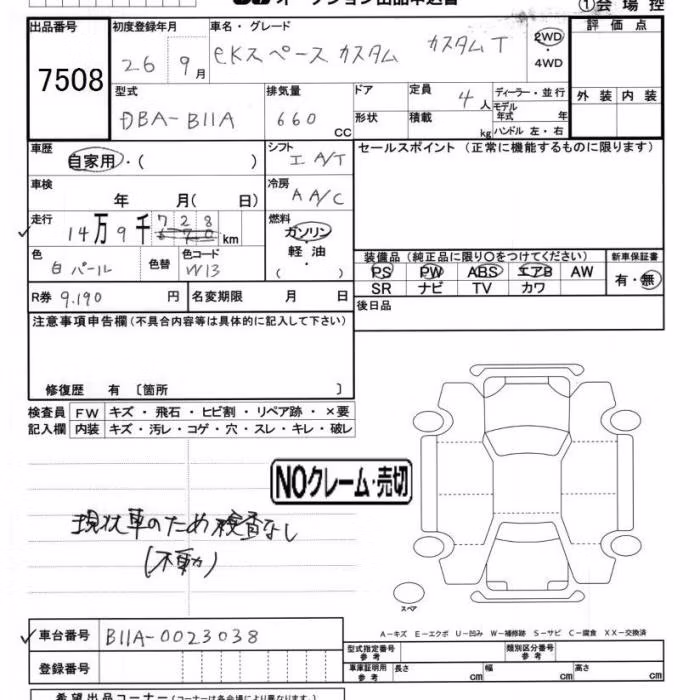 オークション出品申込書
①会場控
出品番号
7508
初度登録年月
26 9月
車名・グレード
eKスペース カスタム カスタムT
2WD・4WD
評価点
外装 内装
型式
DBA-B11A
排気量
660 CC
ドア
形状
定員
4人
積載
kg
ディーラー・並行
モデル年式 年
ハンドル 左・右
車歴
自家用・( )
シフト
I A/T
セールスポイント(正常に機能するものに限ります)
車検
年 月( 日)
冷房
A A/C
走行
14万9千728km
燃料
ガソリン・軽油・( )
色
白パール
色替
色コード
W13
装備品(純正品に限り○をつけてください)
PS PW ABS エアB AW
SR ナビ TV カワ
新車保証書
有・無
R券 9,190 円
名変期限 月 日
後日品
注意事項申告欄(不具合内容等は具体的に記入して下さい)
修復歴 有 〔箇所 〕
検査員記入欄
FW キズ・飛石・ヒビ割・リペア跡・×要
内装 キズ・汚レ・コゲ・穴・スレ・キレ・破レ
NOクレーム・売切
現状車のため検査なし
(不動)
スペア
A-キズ E-エクボ U-凹み W-補修跡 S-サビ C-腐食 XX-交換済
車台番号
B11A-0023038
登録番号
型式指定番号 参考
類別区分番号 参考
車庫証明用 参考
長さ cm 幅 cm 高さ cm
希望出品コーナー(コーナーは各会場により異なります)